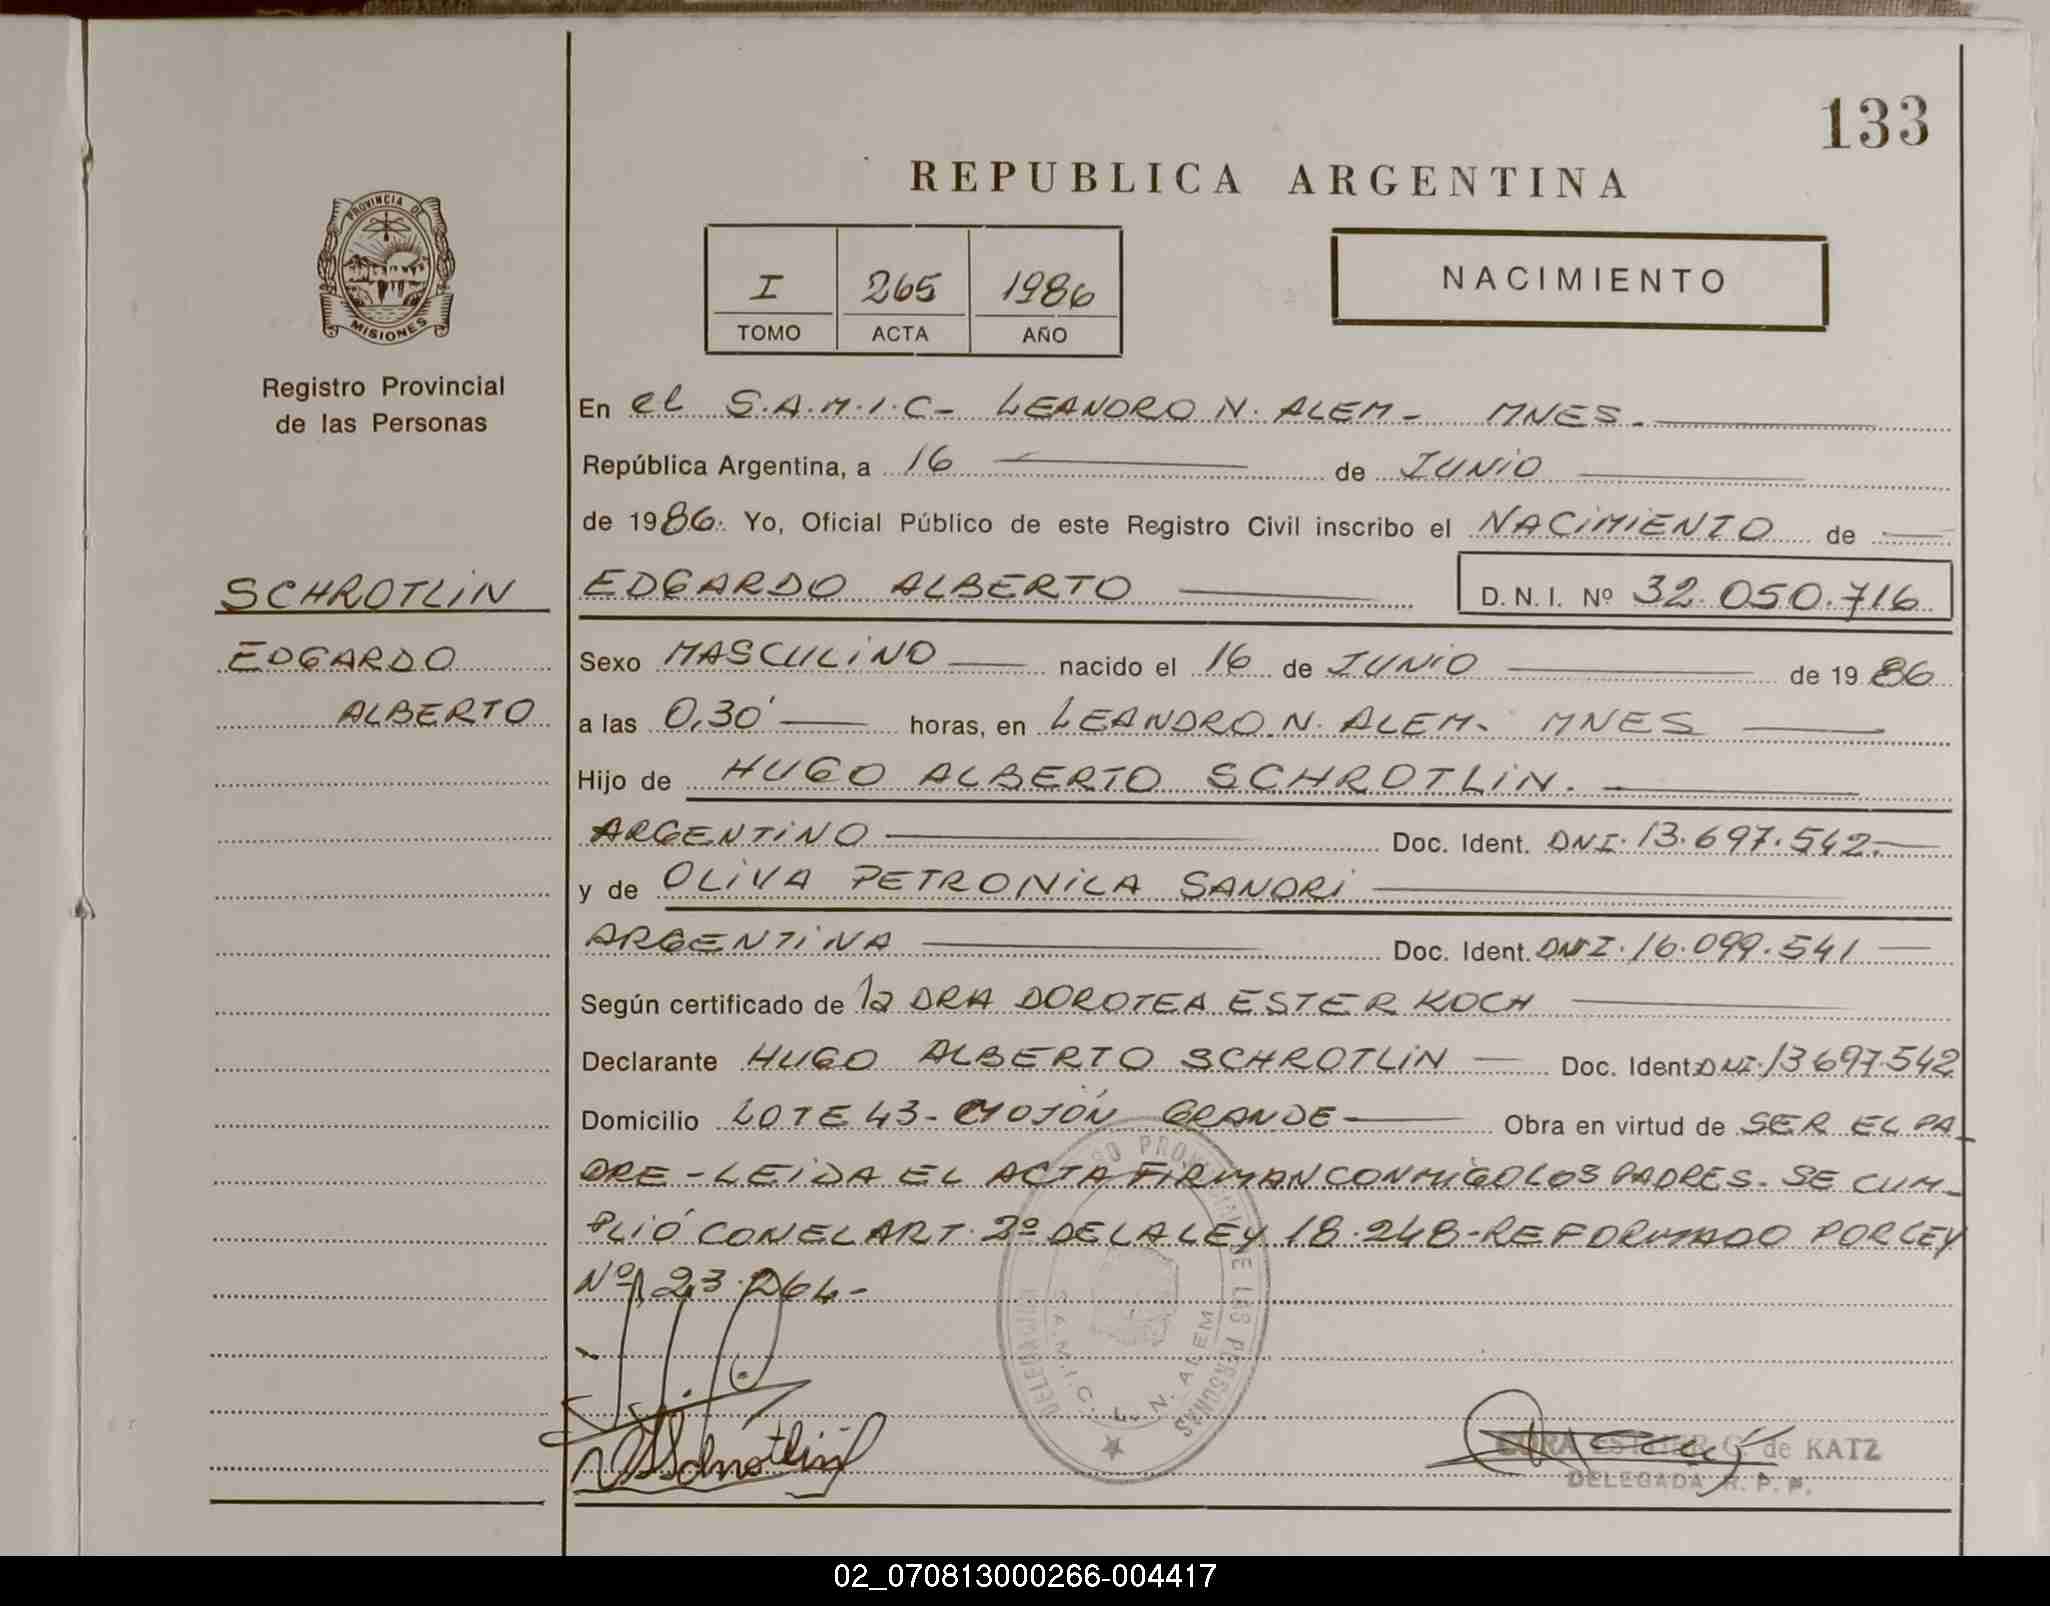 133
REPUBLICA ARGENTINA
PROVINCIA DE
MISIONES
Registro Provincial
de las Personas
I 265 1986
TOMO ACTA AÑO
NACIMIENTO
En el S.A.M.I.C- LEANDRO N. ALEM- MNES.
República Argentina, a 16 de JUNIO
de 1986. Yo, Oficial Público de este Registro Civil inscribo el NACIMIENTO de
SCHROTLIN
EDGARDO
ALBERTO
EDGARDO ALBERTO D.N.I. Nº 32.050.716
Sexo MASCULINO nacido el 16 de JUNIO de 1986
a las 0,30' horas, en LEANDRO N. ALEM- MNES
Hijo de HUGO ALBERTO SCHROTLIN.
ARGENTINO Doc. Ident. DNI. 13.697.542.
y de OLIVA PETRONILA SANDRI
ARGENTINA Doc. Ident. DNI. 16.099.541
Según certificado de la DRA DOROTEA ESTER KOCH
Declarante HUGO ALBERTO SCHROTLIN Doc. Ident. DNI. 13697.542
Domicilio LOTE 43- MOJÓN GRANDE Obra en virtud de SER EL PA-
DRE - LEIDA EL ACTA FIRMAN CONMIGO LOS PADRES. SE CUM-
PLIÓ CON EL ART. 2º DE LA LEY 18.248- REFORMADO POR LEY
Nº 23.264-
DELEGACION
PROVINCIAL DE LAS PERSONAS
S.A.M.I.C. L. N. ALEM
Schrotlin
ESTHER G. de KATZ
DELEGADA R. P. P.
02_070813000266-004417